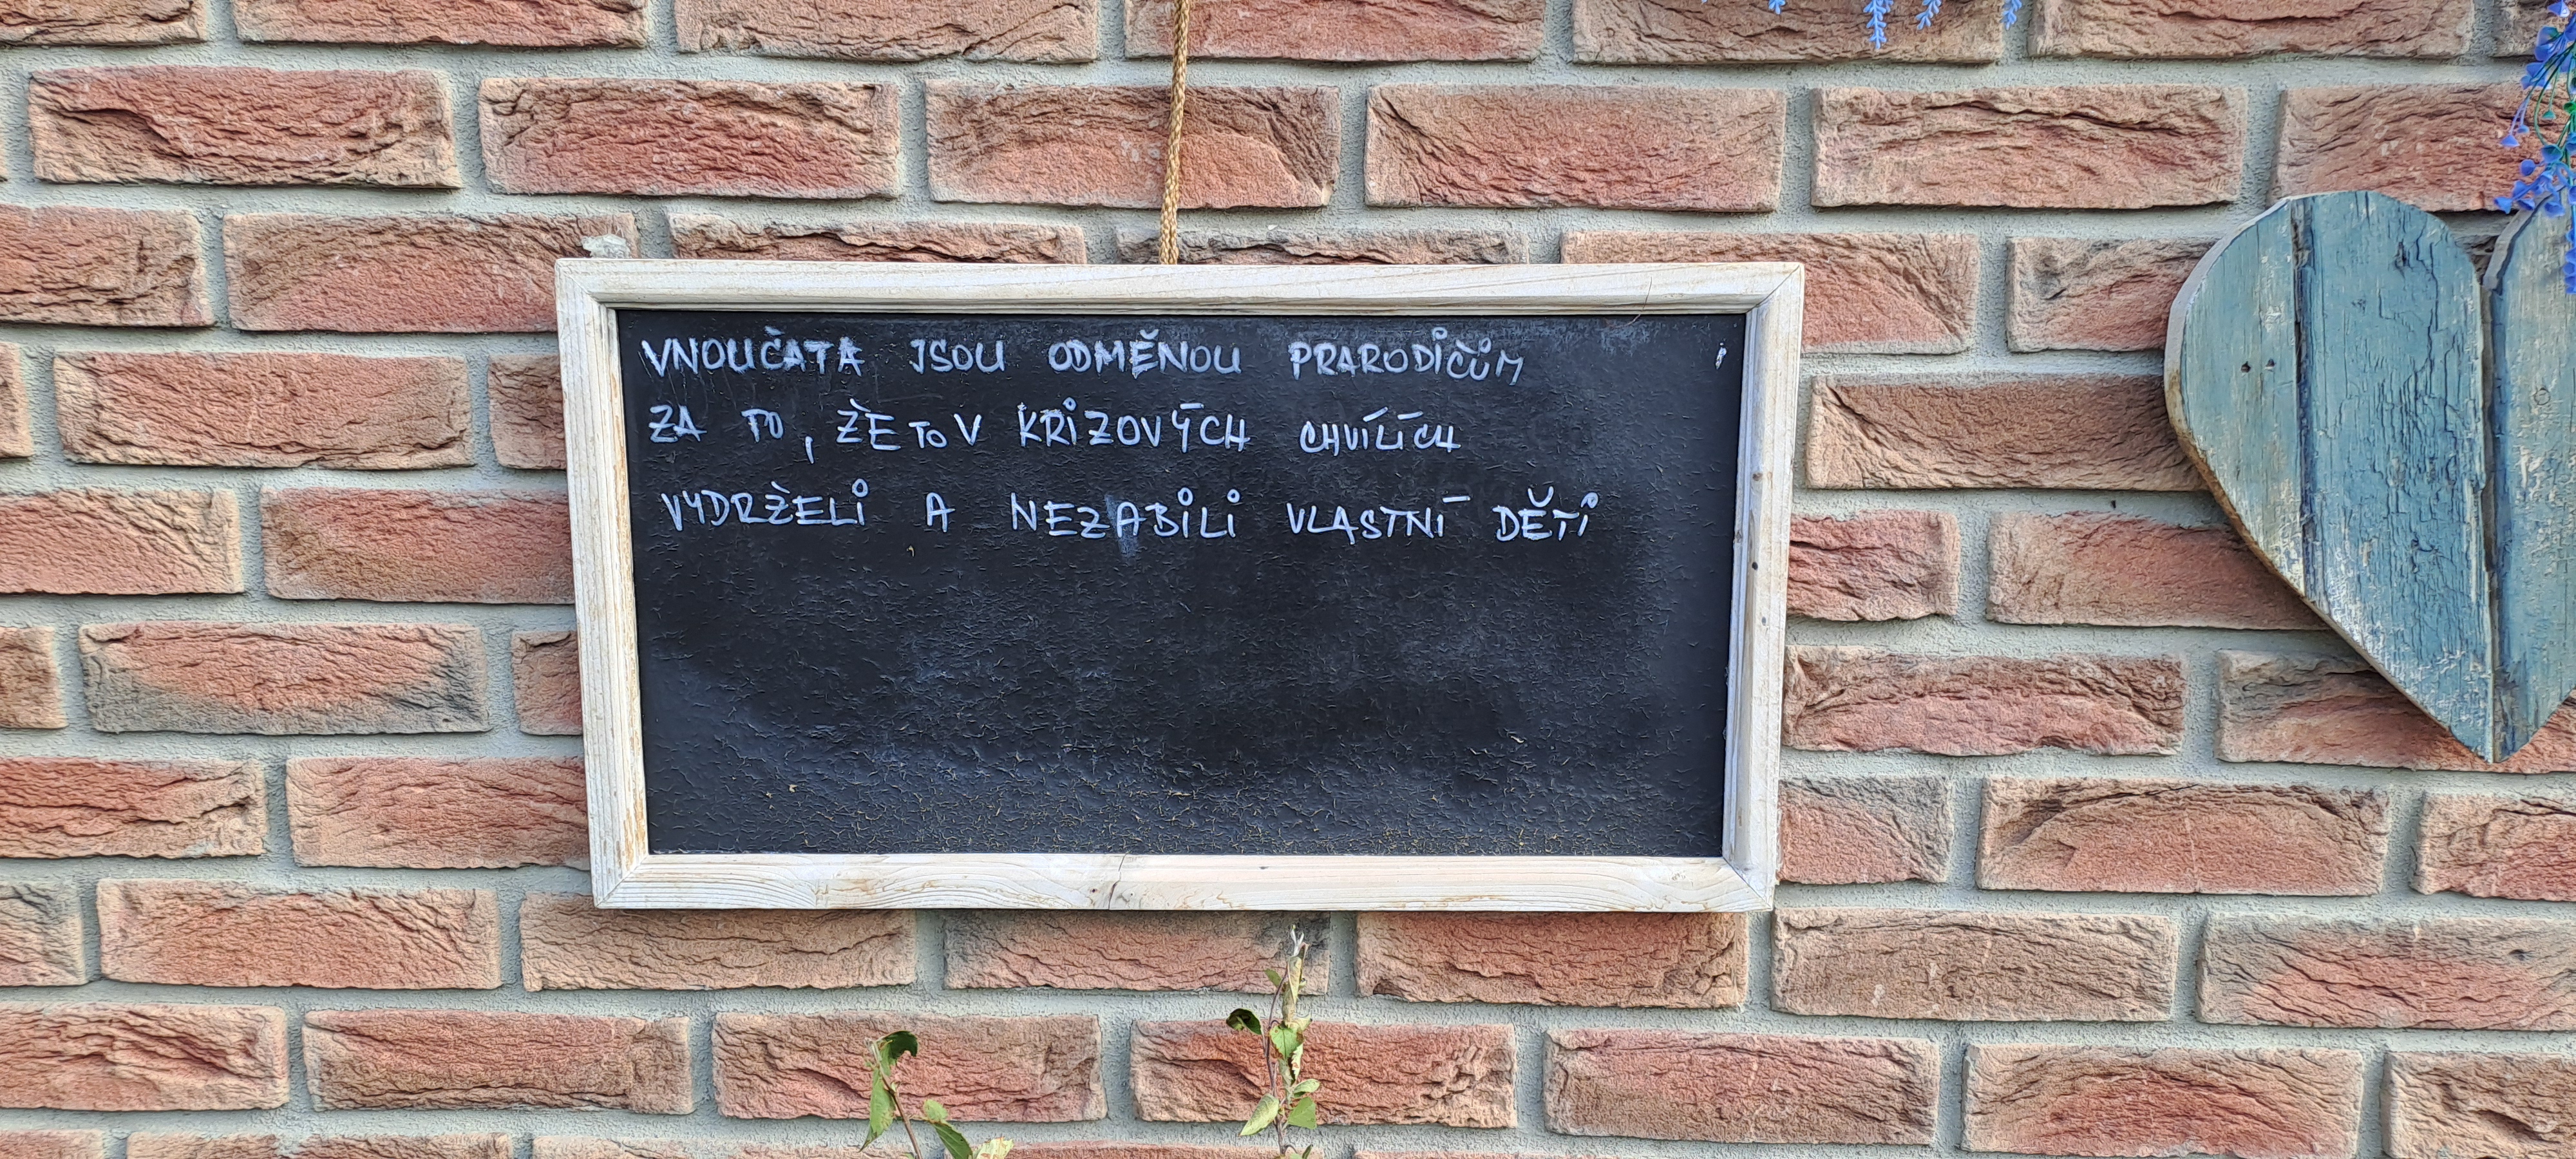 VNOUČATA JSOU ODMĚNOU PRARODIČŮM
ZA TO, ŽE TO V KRIZOVÝCH CHVÍLÍCH
VYDRŽELI A NEZABILI VLASTNÍ DĚTI